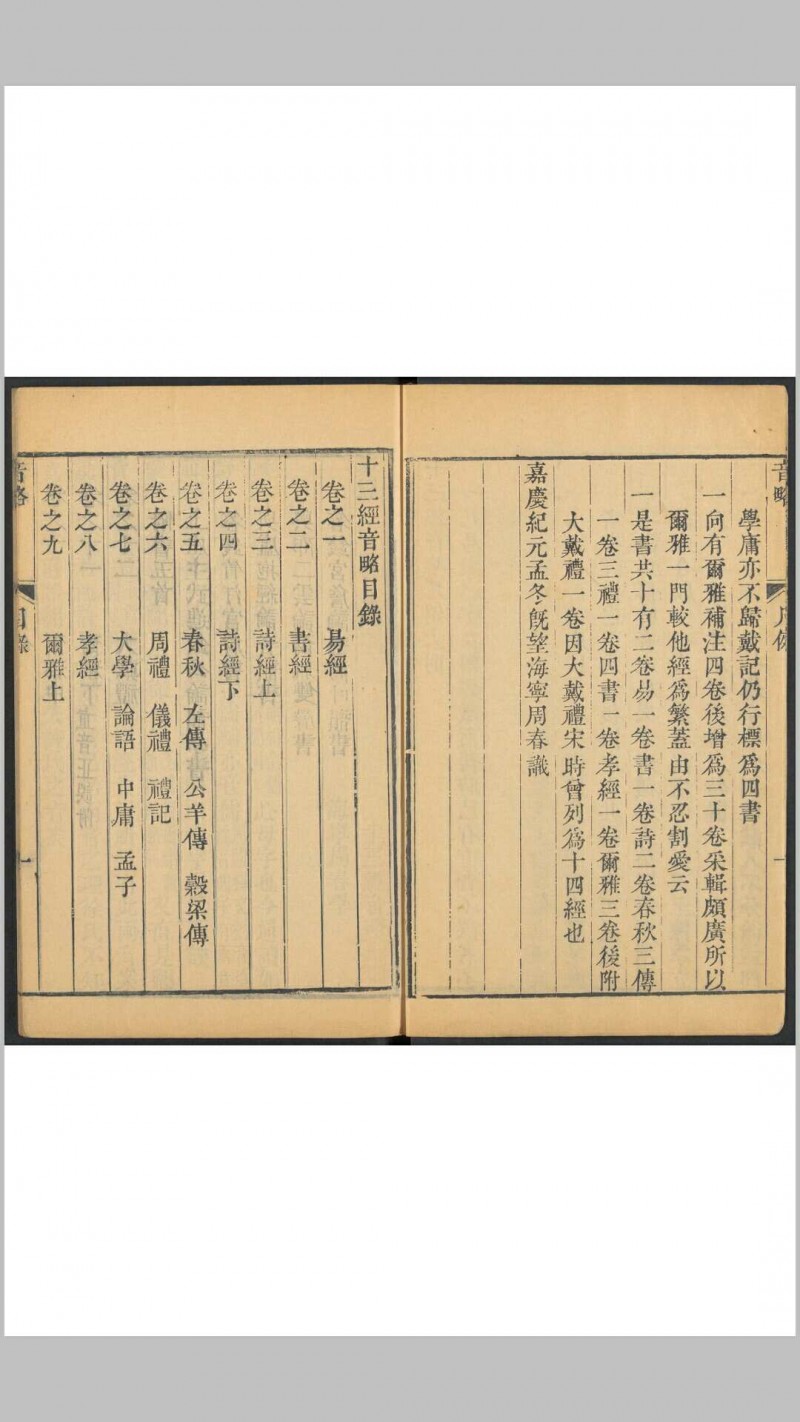 學庸亦不歸戴記仍行標爲四書
一向有爾雅補注四卷後增爲三十卷采輯頗廣所以
爾雅一門較他經爲繁蓋由不忍割愛云
一是書共十有二卷易一卷書一卷詩二卷春秋三傳
一卷三禮一卷四書一卷孝經一卷爾雅三卷後附
大戴禮一卷因大戴禮宋時曾列爲十四經也
嘉慶紀元孟冬旣望海寧周春識
十三經音略目錄
卷之一 易經
卷之二 書經
卷之三 詩經上
卷之四 詩經下
卷之五 春秋 左傳 公羊傳 穀梁傳
卷之六 周禮 儀禮 禮記
卷之七 大學 論語 中庸 孟子
卷之八 孝經
卷之九 爾雅上
音略 目錄 一